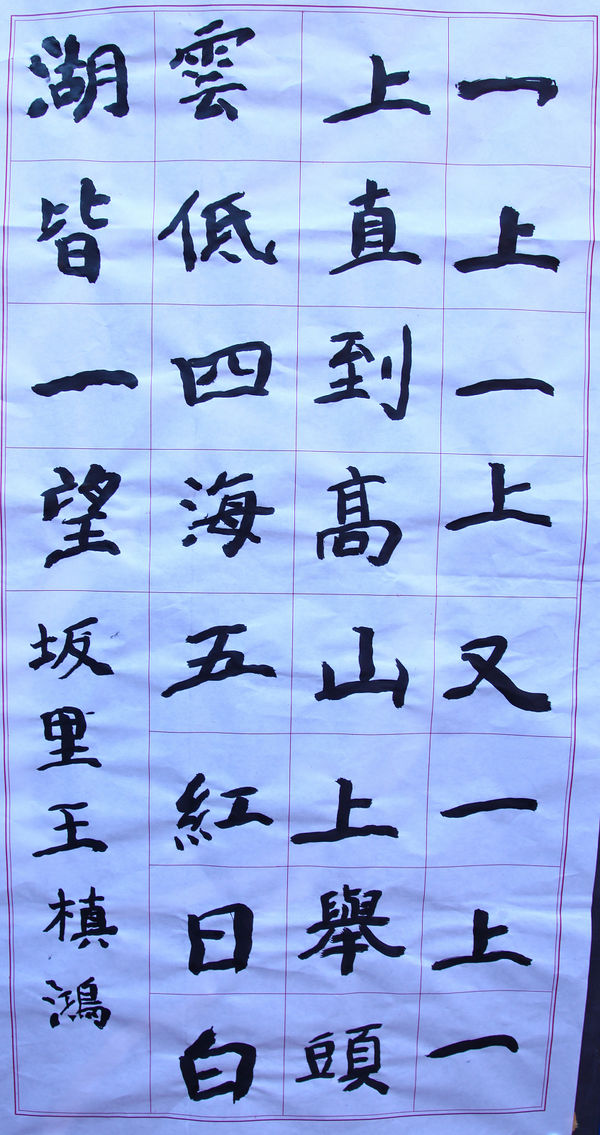 一上一上又一上一
上直到高山上舉頭
雲低四海五紅日白
湖皆一望坂里王槙鴻